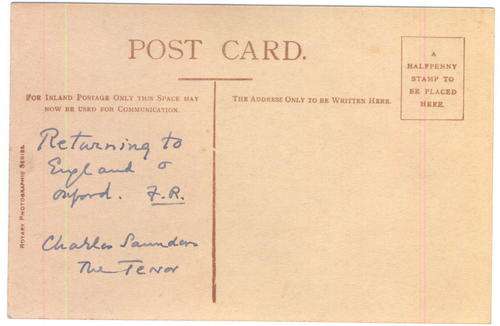 POST CARD.
A
HALFPENNY
STAMP TO
BE PLACED
HERE.
FOR INLAND POSTAGE ONLY THIS SPACE MAY
NOW BE USED FOR COMMUNICATION.
THE ADDRESS ONLY TO BE WRITTEN HERE.
Returning to
England &
Oxford. F.R.
Charles Saunders
The Tenor
ROTARY PHOTOGRAPHIC SERIES.